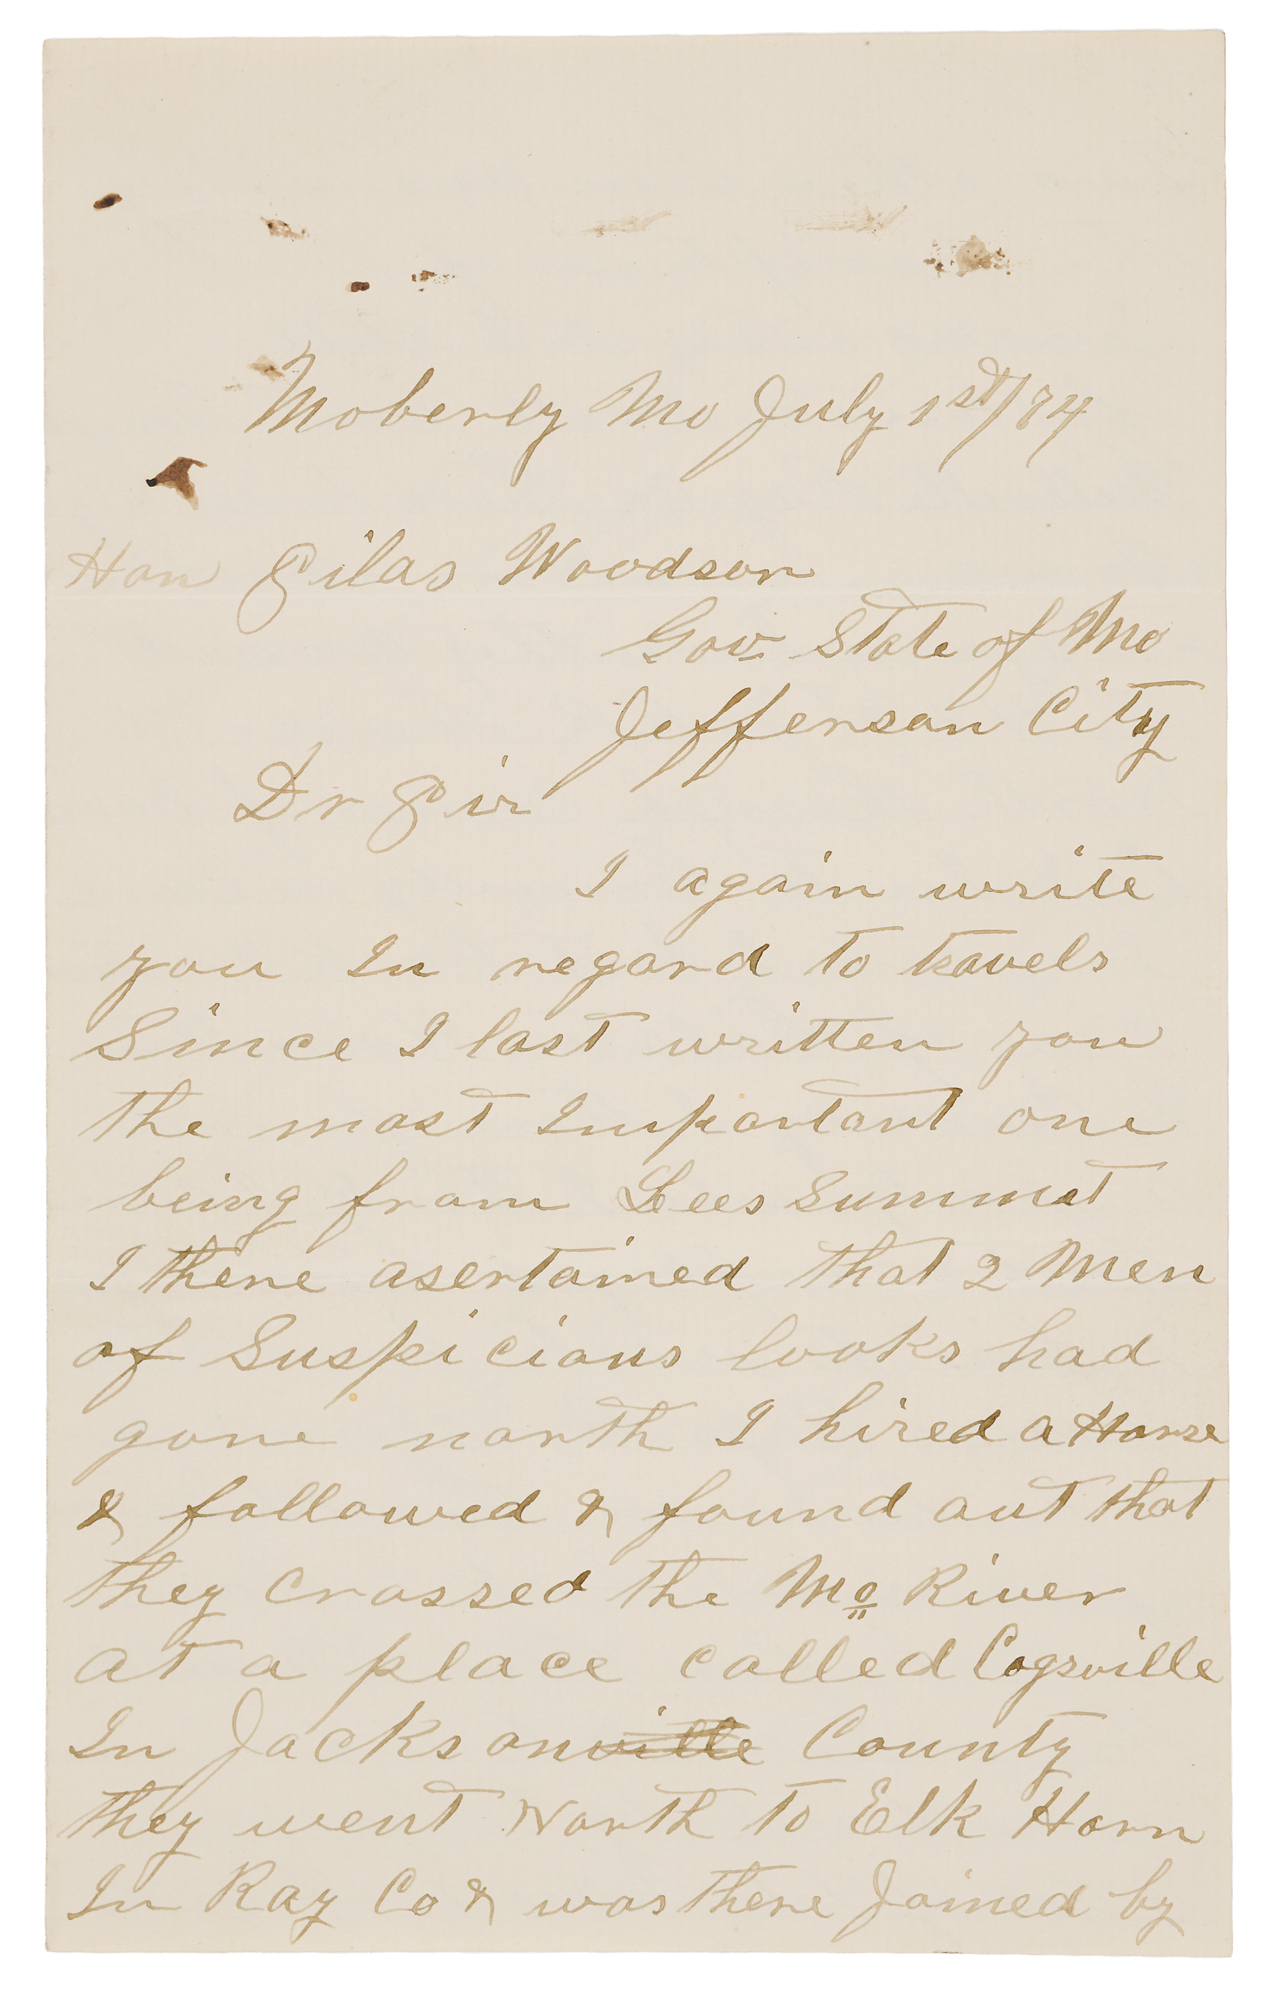 Moberly Mo July 1st/74
Hon Silas Woodson
Gov State of Mo
Jefferson City
Dr Sir
I again write
you In regard to travels
Since I last written you
the most Important one
being from Lees Summit
I there asertained that 2 Men
of Suspicious looks had
gone north I hired a Horse
& followed & found out that
they crossed the Mo River
at a place called Cogsville
In Jacksonville County
they went North to Elk Horn
In Ray Co & was there Joined by